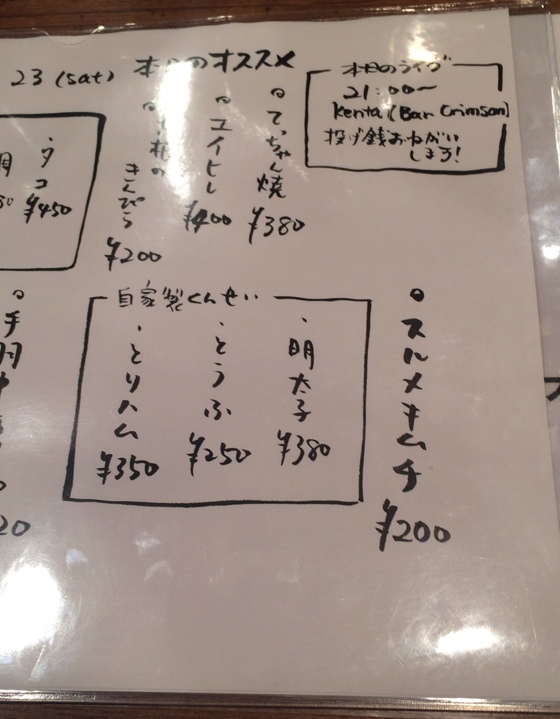 23 (sat) 本日のオススメ
本日のライブ
21:00〜
Kenta (Bar Crimson)
投げ銭おねがい
しまう!
てっちゃん焼
¥380
エイヒレ
¥400
きんぴら
¥200
タコ
¥450
スルメキムチ
¥200
自家製くんせい
明太子
¥380
とうふ
¥250
とりハム
¥350
手羽中
20